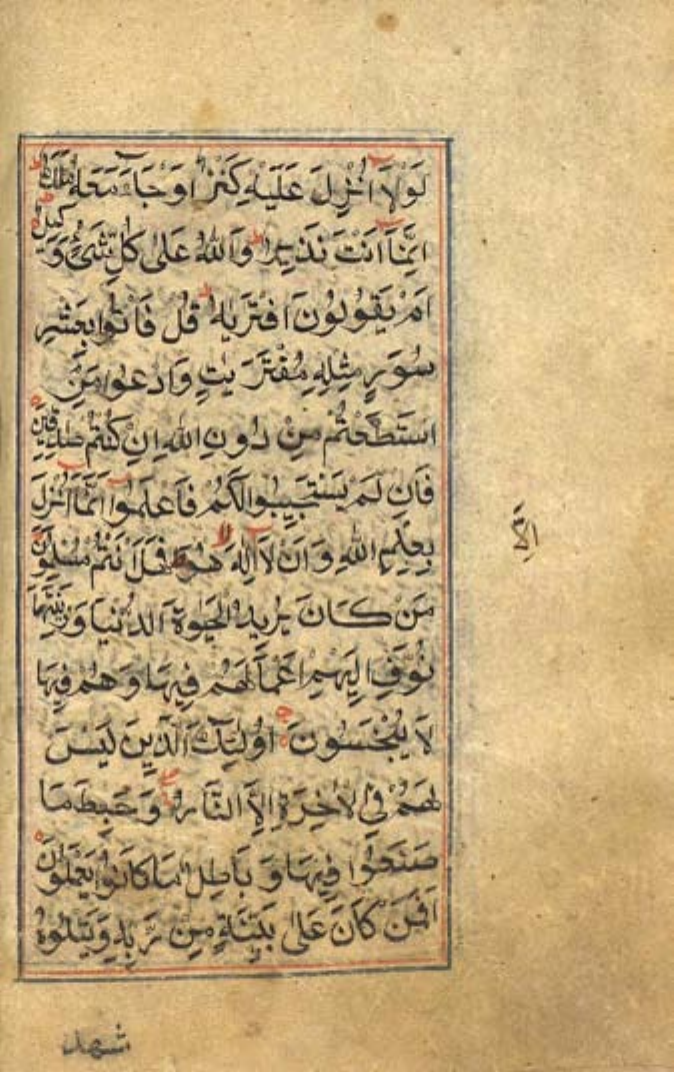 لَوْلَا أُنْزِلَ عَلَيْهِ كَنْزٌ أَوْ جَاءَ مَعَهُ مَلَكٌ
إِنَّمَا أَنْتَ نَذِيرٌ وَاللهُ عَلَىٰ كُلِّ شَيْءٍ وَكِيلٌ
أَمْ يَقُولُونَ افْتَرَيٰهُ قُلْ فَأْتُوا بِعَشْرِ
سُوَرٍ مِثْلِهِ مُفْتَرَيٰتٍ وَادْعُوا مَنِ
اسْتَطَعْتُمْ مِنْ دُونِ اللهِ إِنْ كُنْتُمْ صٰدِقِينَ
فَإِنْ لَمْ يَسْتَجِيبُوا لَكُمْ فَاعْلَمُوا أَنَّمَا أُنْزِلَ
بِعِلْمِ اللهِ وَأَنْ لَا إِلٰهَ هُوَ فَهَلْ أَنْتُمْ مُسْلِمُونَ
مَنْ كَانَ يُرِيدُ الْحَيٰوةَ الدُّنْيَا وَزِينَتَهَا
نُوَفِّ إِلَيْهِمْ أَعْمَالَهُمْ فِيهَا وَهُمْ فِيهَا
لَا يُبْخَسُونَ أُولٰئِكَ الَّذِينَ لَيْسَ
لَهُمْ فِي الْأٰخِرَةِ إِلَّا النَّارُ وَحَبِطَ مَا
صَنَعُوا فِيهَا وَبَاطِلٌ مَا كَانُوا يَعْمَلُونَ
أَفَمَنْ كَانَ عَلَىٰ بَيِّنَةٍ مِنْ رَبِّهِ وَيَتْلُوهُ
إلّا
شهد